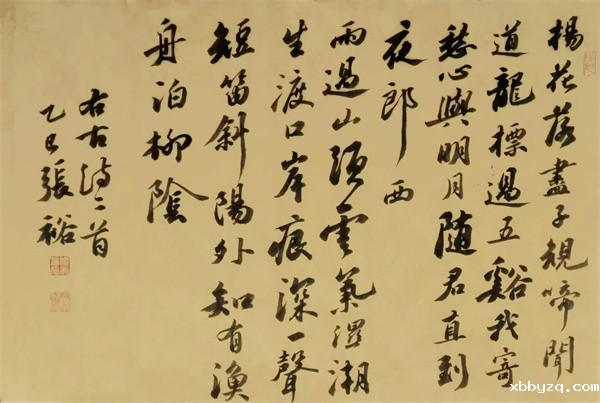 楊花落盡子規啼聞
道龍標過五谿我寄
愁心與明月隨君直到
夜郎西
雨過山頭雲氣溼潮
生渡口岸痕深一聲
短笛斜陽外知有漁
舟泊柳陰
右古詩二首
乙巳張裕
www.xbbyzq.com